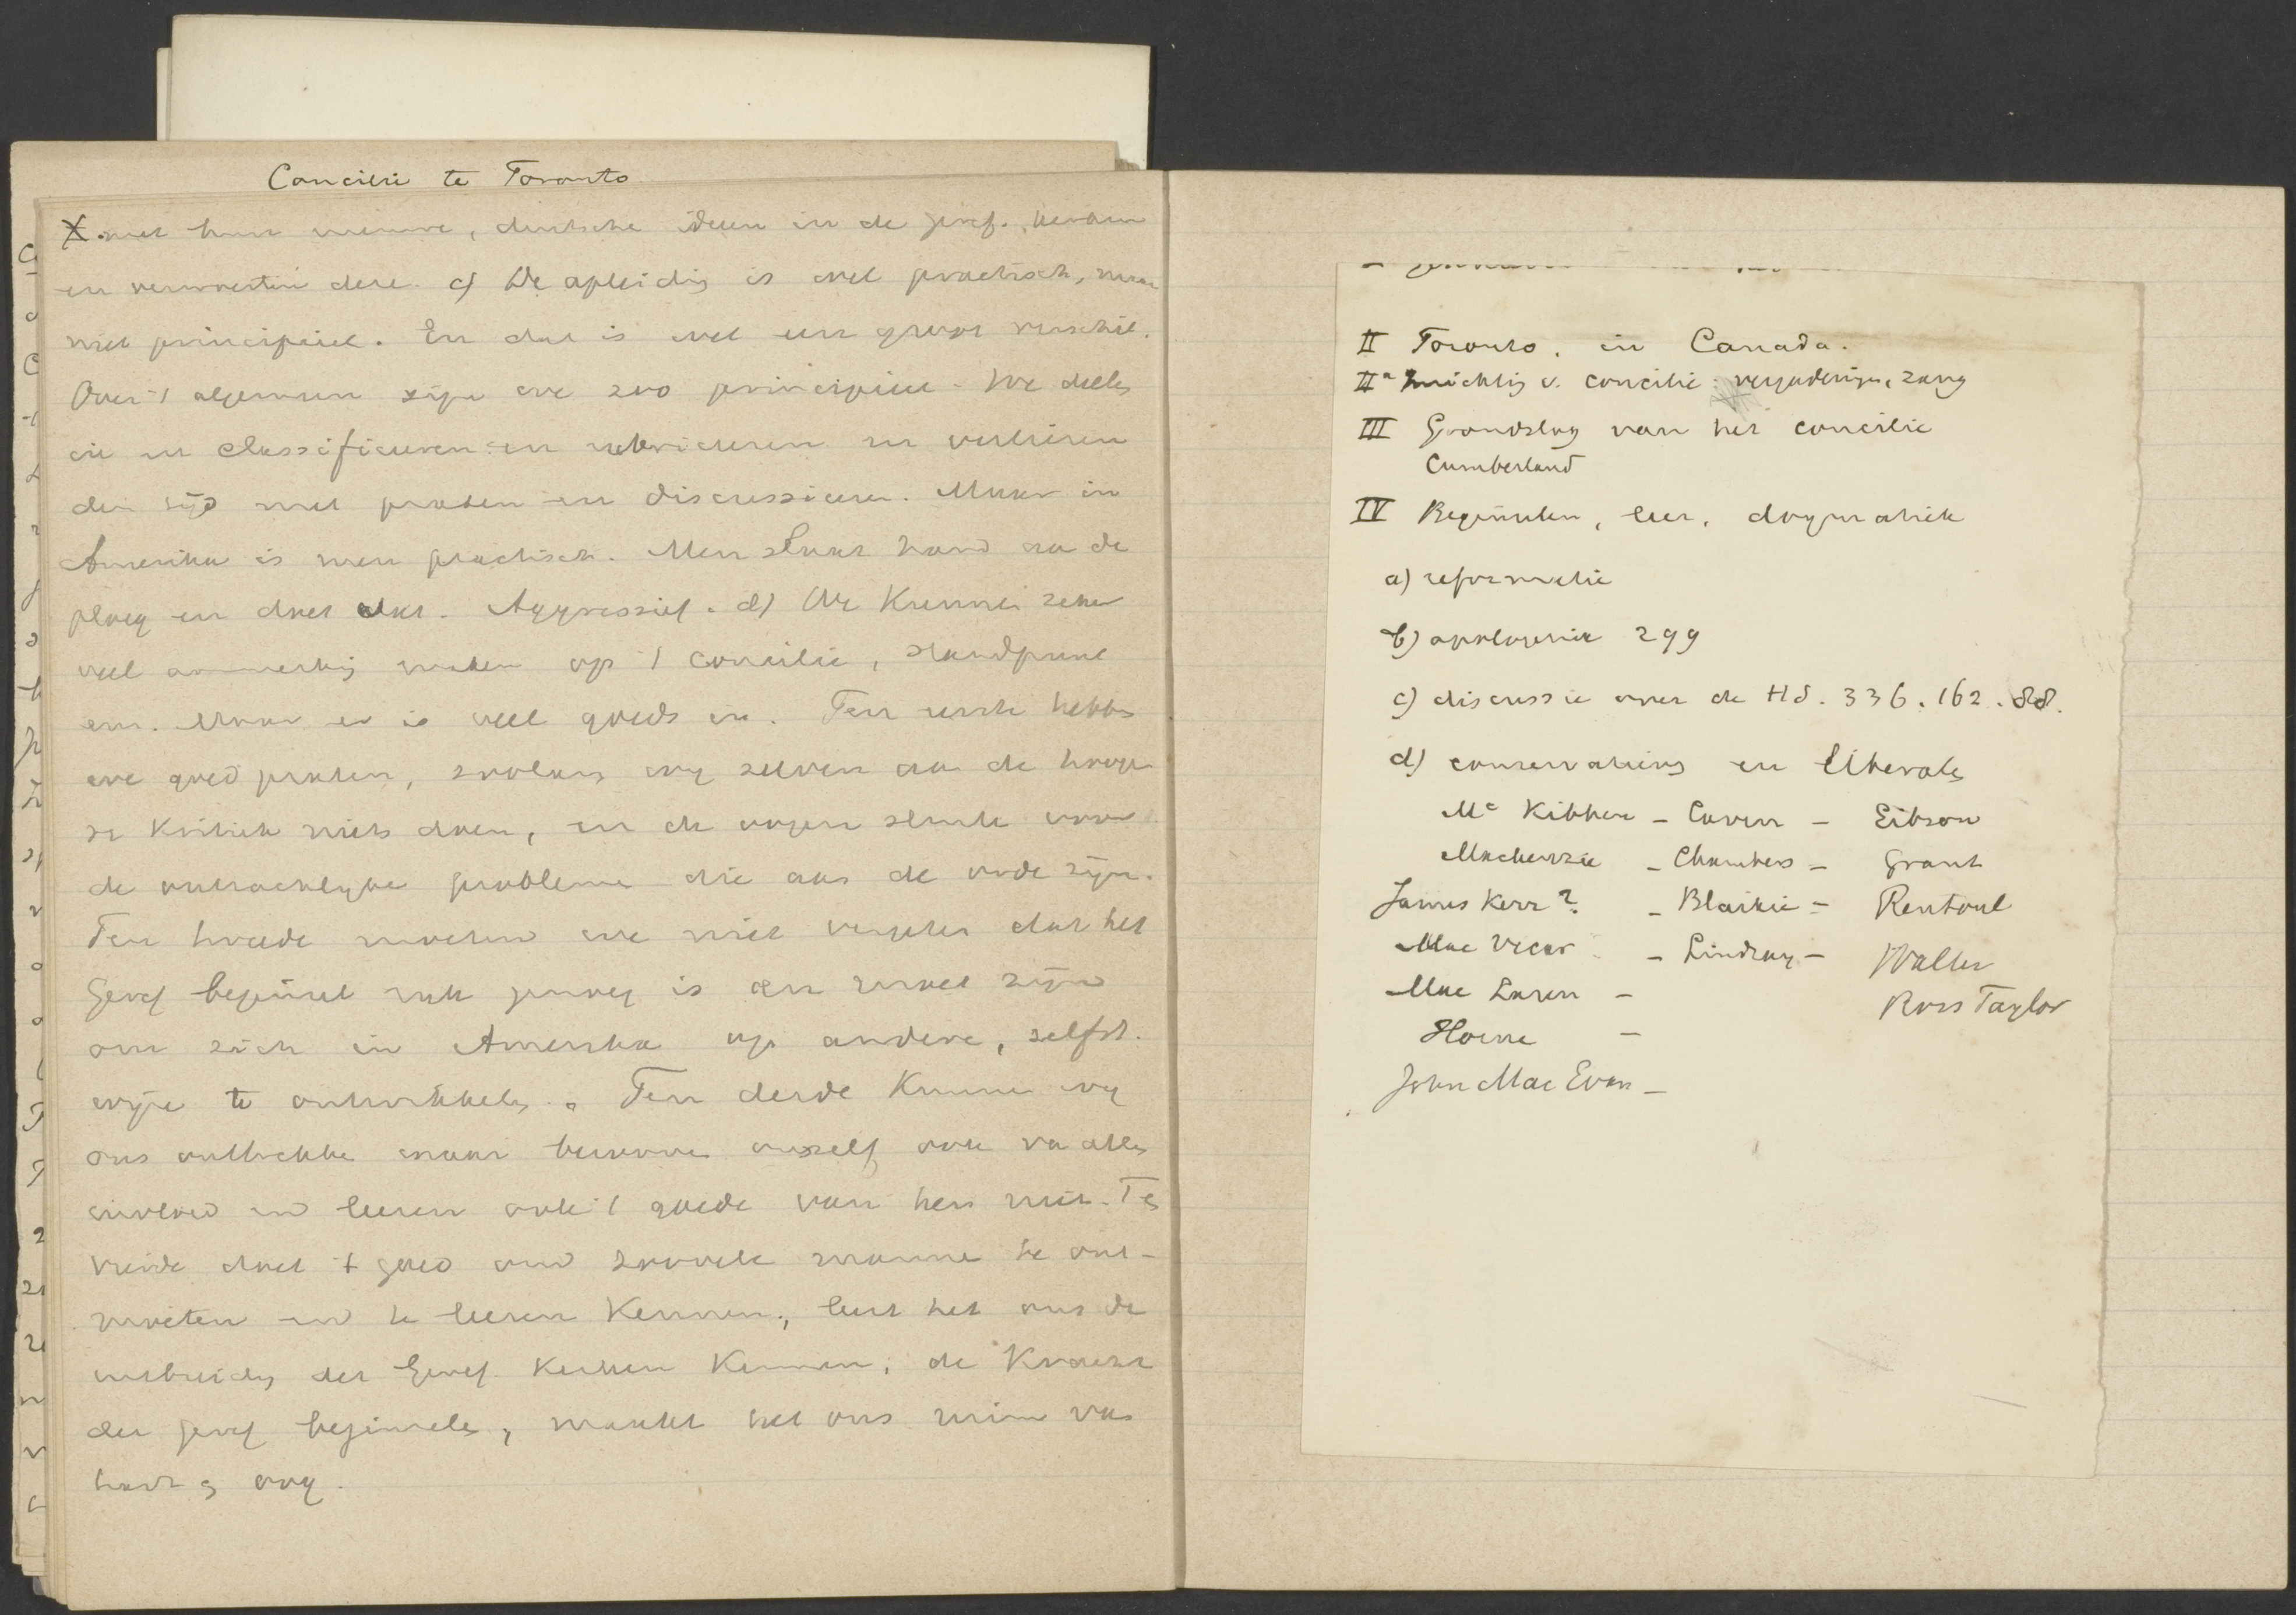 Concilie te Toronto
X. met hun nieuwe, duitsche ideen in de geref. kerken
en verwoesten deze. c) De opleiding is wel practisch, maar
niet principieel. En dat is wel een groot verschil.
Over 't algemeen zijn we zoo principieel. We deelen
in en classificeeren en rubriceeren en verliezen
den tijd met praten en discussieeren. Maar in
Amerika is men practisch. Men slaat hand aan de
ploeg en doet dat. Aggressief. d) We kunnen zeker
veel aanmerking maken op 't concilie, standpunt
enz. Maar er is veel goeds in. Ten eerste hebben
we goed praten, zoolang wij zelven aan de hooge
re kritiek niets doen, en de oogen sluiten voor
de ontzachlijke problemen die aan de orde zijn.
Ten tweede moeten we niet vergeten dat het
Geref beginsel rijk genoeg is en moet zijn
om zich in Amerika op andere, zelfst.
wijze te ontwikkelen. Ten derde kunnen wij
ons onttrekken maar berooven onszelf ook van allen
invloed en leeren ook 't goede van hen niet. Ten
vierde doet 't goed om zoovele mannen te ont-
moeten en te leeren kennen, leert het ons de
uitbreiding der Geref. kerken kennen, de kracht
der geref beginselen, maakt het ons ruim van
hart
II Toronto, in Canada.
IIa Inrichting v. concilie: vergaderingen, zang
III Grondslag van het concilie
Cumberland
IV Beginselen, leer, dogmatiek
a) reformatie
b) apologetiek 299
c) discussie over de HS. 336. 162. 88.
d) conservatieven en liberalen
Mc Kibben - Caven - Gibson
Mackenzie - Chambers - Grant
James Kerr? - Blaikie - Rentoul
Mac Vicar - Lindsay - Waller
Mac Laren - Ross Taylor
Hoerne -
John Mac Ewan -